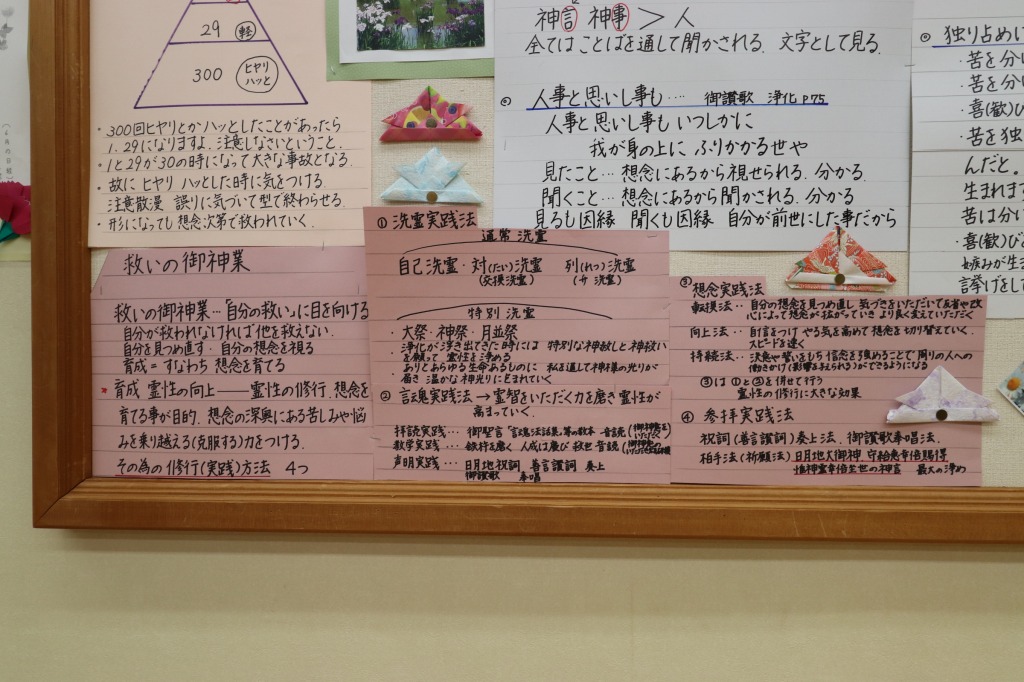 29 軽
300 ヒヤリハッと
・300回ヒヤリとかハッとしたことがあったら
1.29になりますよ、注意しなさいということ。
・1と29が30の時になって大きな事故となる.
・故に ヒヤリ ハッした時に気をつける.
注意散漫 誤りに気づいて型で終わらせる.
・形になっても想念次第で救われていく.
救いの御神業
救いの御神業…「自分の救い」に目を向ける
自分が救われなければ他を救えない.
自分を見つめ直す・自分の想念を視る
育成=すなわち想念を育てる
育成 霊性の向上――霊性の修行.想念を
育てる事が目的.想念の深奥にある苦しみや悩
みを乗り越える(克服する)力をつける.
その為の修行(実践)方法 4つ
① 洗霊実践法
通常洗霊
自己洗霊・対(たい)洗霊 列(れつ)洗霊
(交換洗霊)
特別洗霊
・大祭・神祭・月並祭
・浄化が浮き出てきた時には 特別な神赦しと神救い
を願って 霊性を浄める
ありとあらゆる生命あるものに 私を通して神様の光りが
届き 温かな神光りに包まれていく
② 言魂実践法→霊智をいただく力を磨き霊性が
高まっていく.
拝読実践…御聖言
教学実践…
声明実践… 日月地祝詞 善言讃詞 奏上
御讃歌 奏唱
神言 神事 > 人
全てはことばを通して聞かされる.文字として見る.
人事と思いし事も…. 御讃歌 浄化 P75
人事と思いし事も いつしかに
我が身の上に ふりかかる世や
見たこと…想念にあるから視せられる.分かる.
聞くこと…想念にあるから聞かされる.分かる
見るも因縁 聞くも因縁 自分が前世にした事だから
③ 想念実践法
転換法‥自分の想念を見つめ直し 気づきをいただいて反省や改
心によって想念が拡がっていき より良く変えていただく
向上法‥自信をつけ やる気を高めて想念を切り替えていく.
スピードを速く
持続法‥決意や誓いをもち 信念を強めることで 周りの人への
働きかけ(影響を与えられる)ができるようになる
③は①と②を併せて行う
霊性の修行に大きな効果
④ 参拝実践法
祝詞(善言讃詞)奏上法.御讃歌奉唱法.
相手法(祈願法)日月地大御神 守給恵幸倍賜得
惟神霊幸倍坐世の神言 最大の浄め
独り占めに
・苦を分け
・苦を分
・喜(歓)び
・苦を独
んだと。
生まれま
苦は分け
・喜(歓)びを
嫉みが生ま
言挙げをして